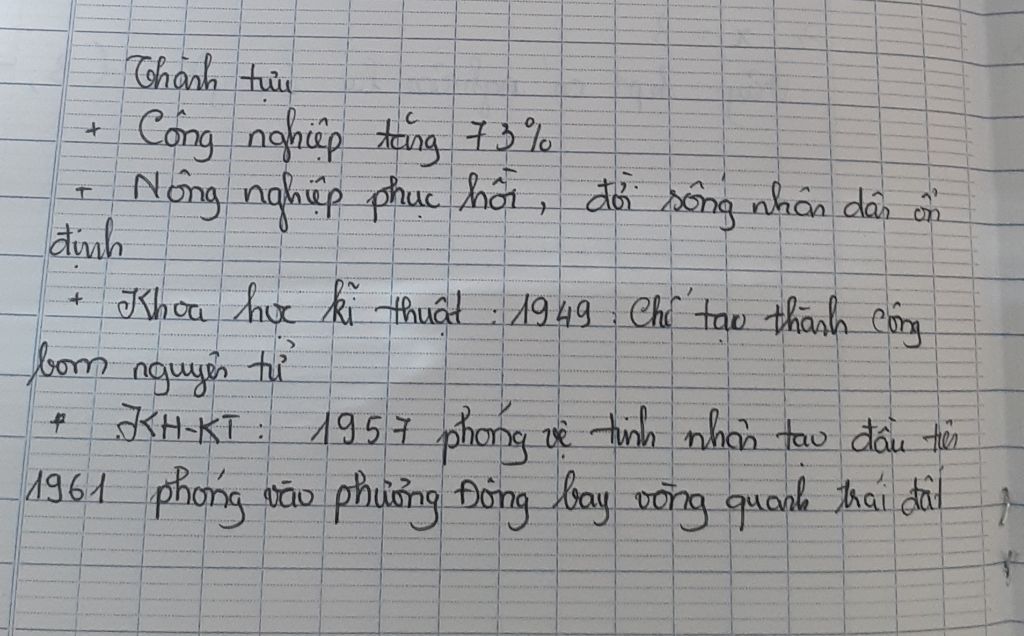 Thành tựu
+ Công nghiệp tăng 73%
+ Nông nghiệp phục hồi, đời sống nhân dân ổn
định
+ Khoa học kĩ thuật : 1949 : Chế tạo thành công
bom nguyên tử
+ KH-KT : 1957 phóng vệ tinh nhân tạo đầu tiên
1961 phóng vào phương Đông bay vòng quanh trái đất